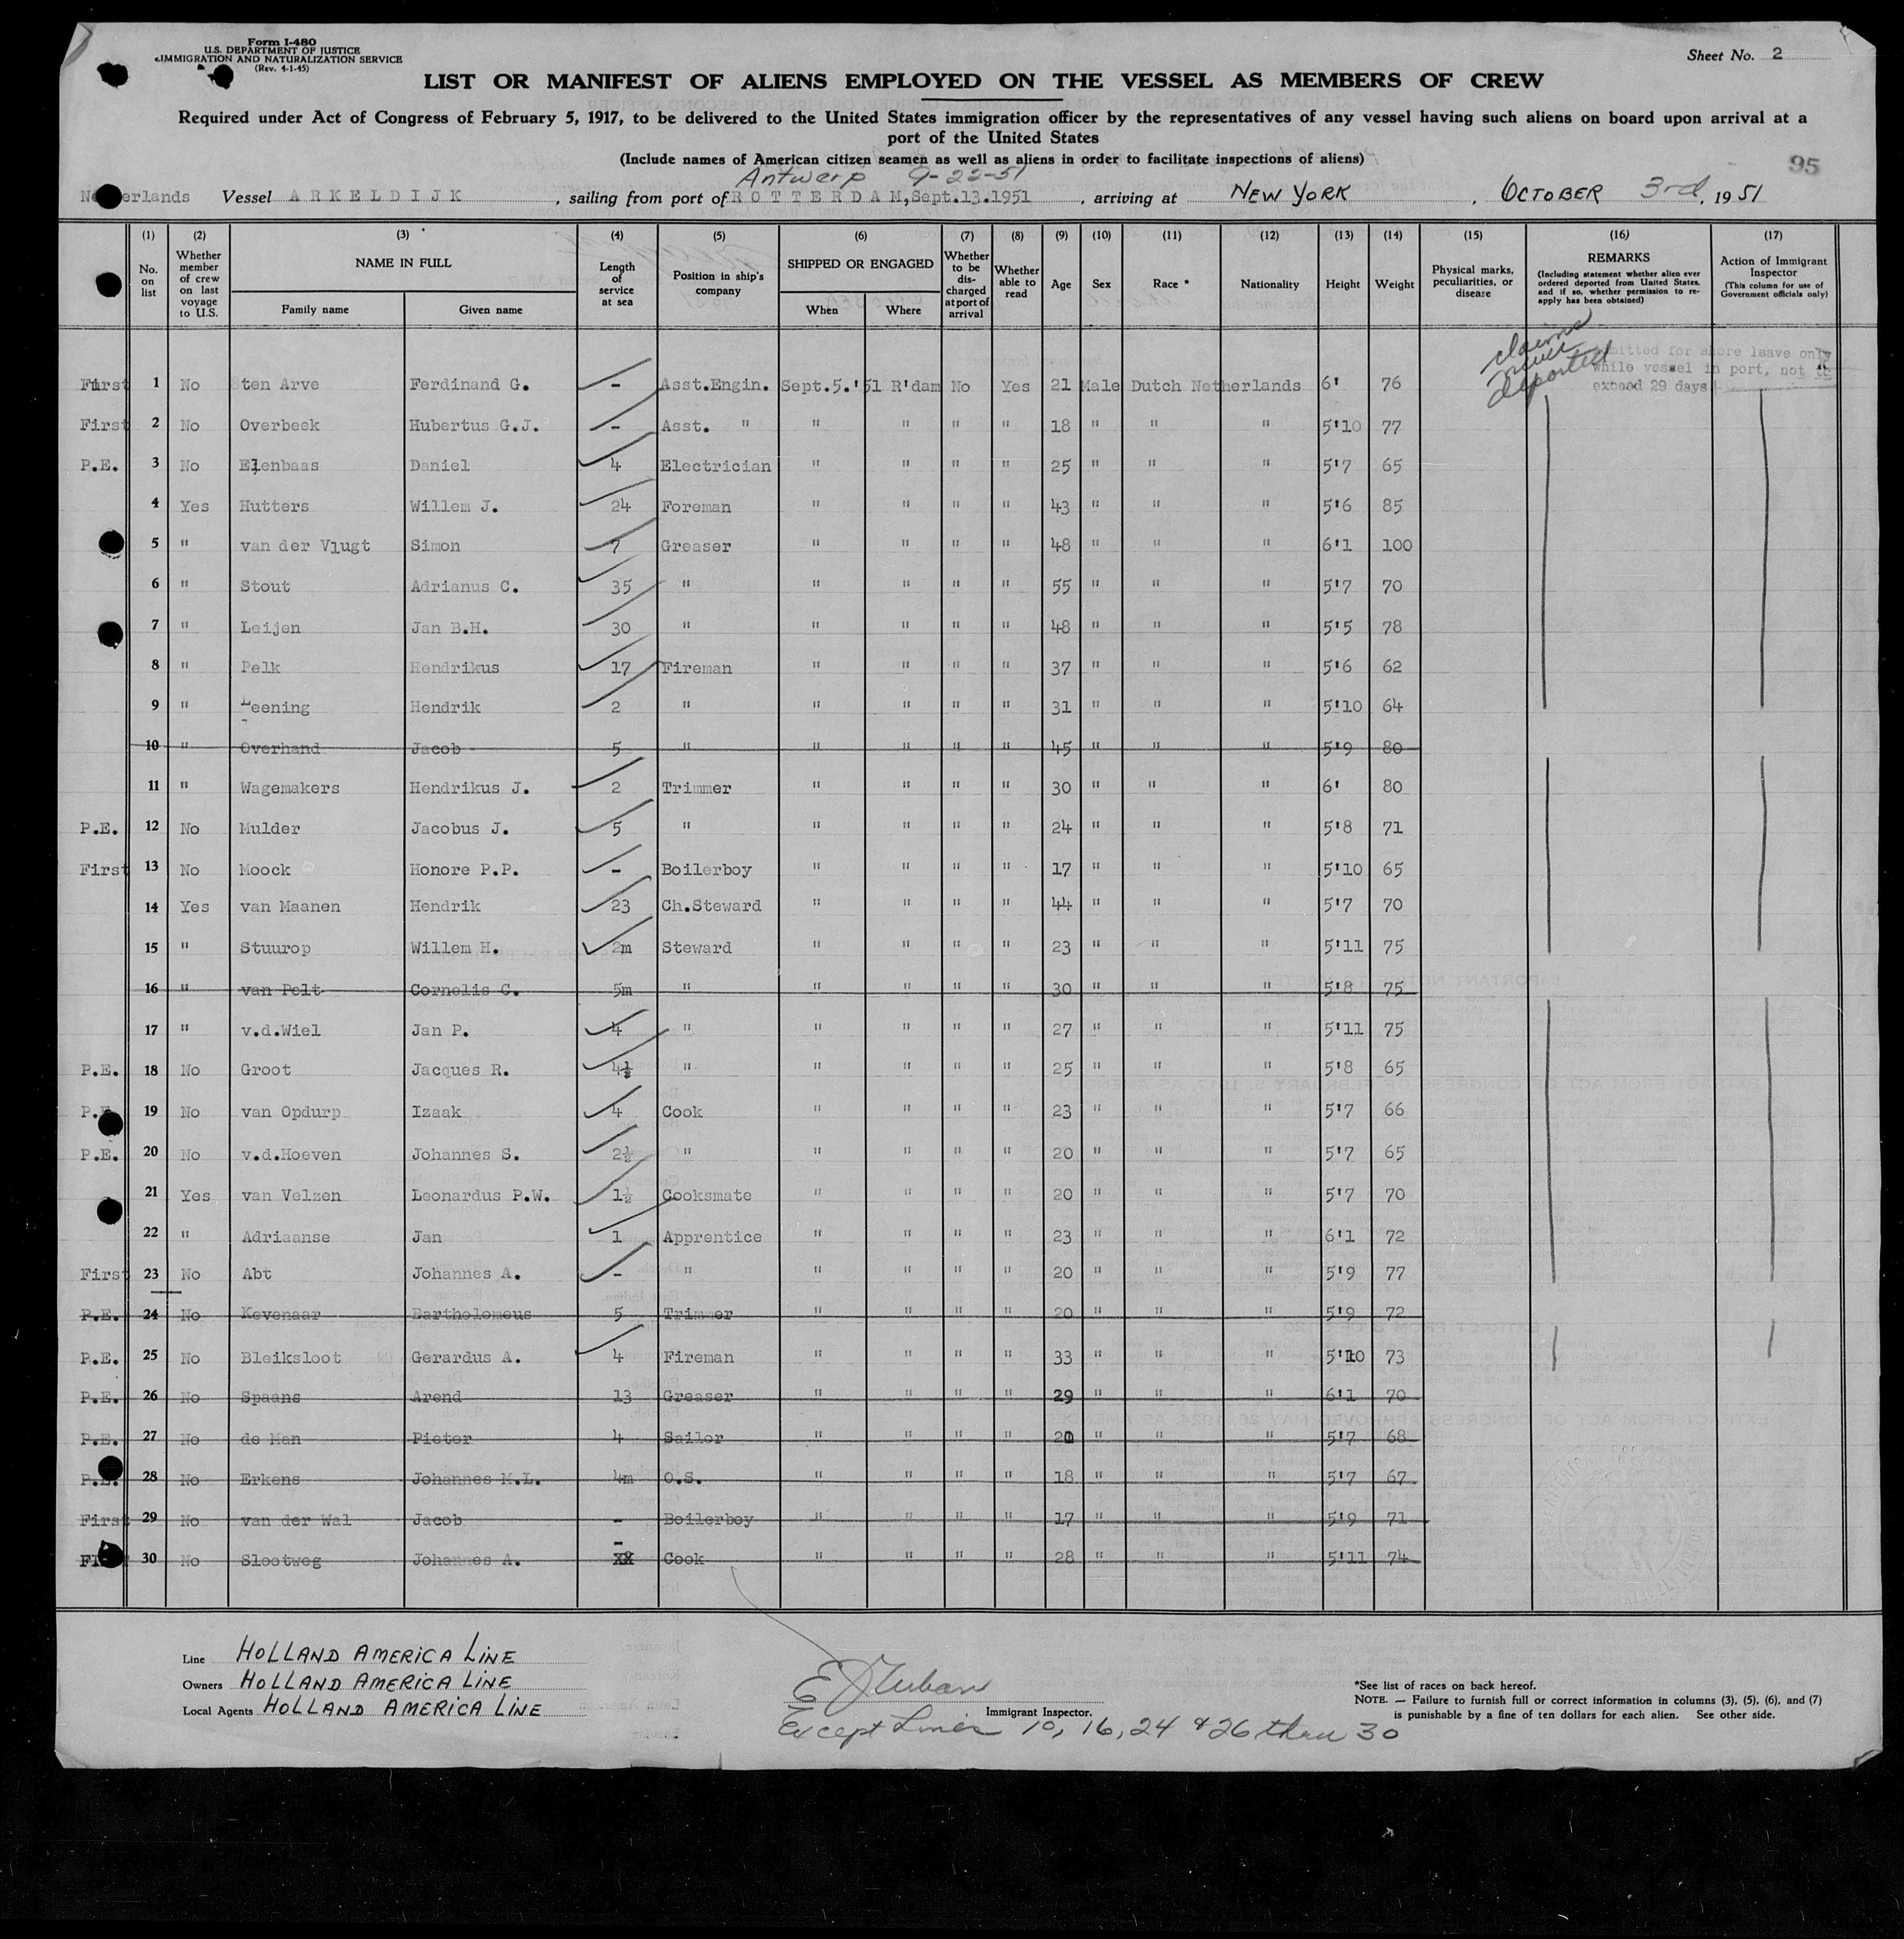 Form I-480
U.S. DEPARTMENT OF JUSTICE
IMMIGRATION AND NATURALIZATION SERVICE
(Rev. 4-1-45)
Sheet No. 2
LIST OR MANIFEST OF ALIENS EMPLOYED ON THE VESSEL AS MEMBERS OF CREW
Required under Act of Congress of February 5, 1917, to be delivered to the United States immigration officer by the representatives of any vessel having such aliens on board upon arrival at a
port of the United States
(Include names of American citizen seamen as well as aliens in order to facilitate inspections of aliens)
95
Antwerp 9-22-51
Netherlands Vessel ARKELDIJK, sailing from port of ROTTERDAM, Sept.13.1951, arriving at NEW YORK, OCTOBER 3rd, 1951
(1) (2) (3) (4) (5) (6) (7) (8) (9) (10) (11) (12) (13) (14) (15) (16) (17)
No. on list
Whether member of crew on last voyage to U.S.
NAME IN FULL
Family name Given name
Length of service at sea
Position in ship's company
SHIPPED OR ENGAGED
When Where
Whether to be discharged at port of arrival
Whether able to read
Age Sex Race * Nationality Height Weight
Physical marks, peculiarities, or disease
REMARKS
(Including statement whether alien ever ordered deported from United States, and if so, whether permission to reapply has been obtained)
Action of Immigrant Inspector
(This column for use of Government officials only)
claims never deported
Admitted for shore leave only
while vessel in port, not to
exceed 29 days
First 1 No ten Arve Ferdinand G. - Asst.Engin. Sept.5.'51 R'dam No Yes 21 Male Dutch Netherlands 6' 76
First 2 No Overbeek Hubertus G.J. - Asst. " " " " " 18 " " " 5'10 77
P.E. 3 No Elenbaas Daniel 4 Electrician " " " " 25 " " " 5'7 65
4 Yes Hutters Willem J. 24 Foreman " " " " 43 " " " 5'6 85
5 " van der Vlugt Simon 7 Greaser " " " " 48 " " " 6'1 100
6 " Stout Adrianus C. 35 " " " " " 55 " " " 5'7 70
7 " Leijen Jan B.H. 30 " " " " " 48 " " " 5'5 78
8 " Pelk Hendrikus 17 Fireman " " " " 37 " " " 5'6 62
9 " Leening Hendrik 2 " " " " " 31 " " " 5'10 64
10 " Overhand Jacob 5 " " " " " 45 " " " 5'9 80
11 " Wagemakers Hendrikus J. 2 Trimmer " " " " 30 " " " 6' 80
P.E. 12 No Mulder Jacobus J. 5 " " " " " 24 " " " 5'8 71
First 13 No Moock Honore P.P. - Boilerboy " " " " 17 " " " 5'10 65
14 Yes van Maanen Hendrik 23 Ch.Steward " " " " 44 " " " 5'7 70
15 " Stuurop Willem H. 2m Steward " " " " 23 " " " 5'11 75
16 " van Pelt Cornelis C. 5m " " " " " 30 " " " 5'8 75
17 " v.d.Wiel Jan P. 4 " " " " " 27 " " " 5'11 75
P.E. 18 No Groot Jacques R. 4½ " " " " " 25 " " " 5'8 65
P.E. 19 No van Opdurp Izaak 4 Cook " " " " 23 " " " 5'7 66
P.E. 20 No v.d.Hoeven Johannes S. 2½ " " " " " 20 " " " 5'7 65
21 Yes van Velzen Leonardus P.W. 1½ Cooksmate " " " " 20 " " " 5'7 70
22 " Adriaanse Jan 1 Apprentice " " " " 23 " " " 6'1 72
First 23 No Abt Johannes A. - " " " " " 20 " " " 5'9 77
P.E. 24 No Kevenaar Bartholomeus 5 Trimmer " " " " 20 " " " 5'9 72
P.E. 25 No Bleiksloot Gerardus A. 4 Fireman " " " " 33 " " " 5'10 73
P.E. 26 No Spaans Arend 13 Greaser " " " " 29 " " " 6'1 70
P.E. 27 No de Man Pieter 4 Sailor " " " " " " " 5'7 68
P.E. 28 No Erkens Johannes M.L. 4m O.S. " " " " 18 " " " 5'7 67
First 29 No van der Wal Jacob - Boilerboy " " " " 17 " " " 5'9 71
First 30 No Slootweg Johannes A. - Cook " " " " 28 " " " 5'11 74
Line HOLLAND AMERICA LINE
Owners HOLLAND AMERICA LINE
Local Agents HOLLAND AMERICA LINE
Immigrant Inspector.
Except Lines 10, 16, 24 & 26 thru 30
*See list of races on back hereof.
NOTE. — Failure to furnish full or correct information in columns (3), (5), (6), and (7)
is punishable by a fine of ten dollars for each alien. See other side.